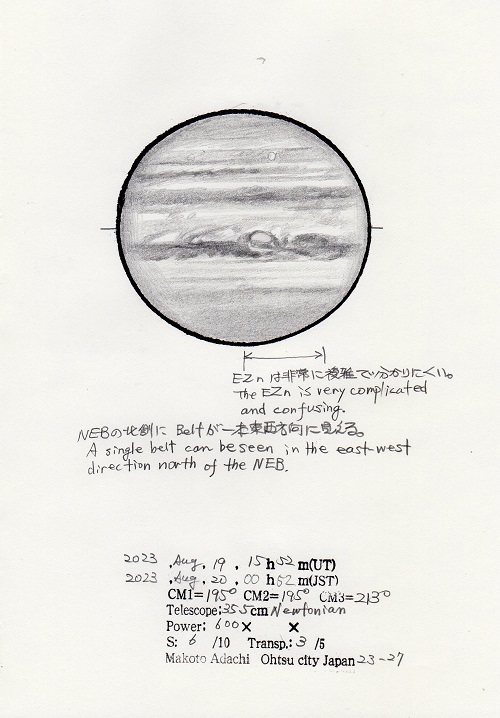 EZnは非常に複雑で分かりにくい。
The EZn is very complicated
and confusing.
NEBの北側に Beltが一本東西方向に見える。
A single belt can be seen in the east-west
direction north of the NEB.
2023 , Aug, 19 , 15h52m(UT)
2023 , Aug, 20 , 00h52m(JST)
CM1=195° CM2=195° CM3=213°
Telescope:35.5cm Newtonian
Power: 600× ×
S: 6 /10 Transp.: 3 /5
Makoto Adachi Ohtsu city Japan 23-27